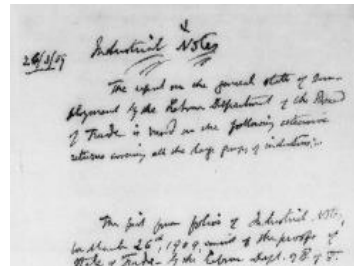 26/3/09
Industrial Notes
The report on the general state of em-
ployment by the Labour Department of the Board
of Trade is based on the following extensive
returns covering all the large groups of industries:-
The first four folios of Industrial Notes,
for March 26th, 1909, consist of the proofs of
State of Trade - by the Labour Dept. of B. of T.